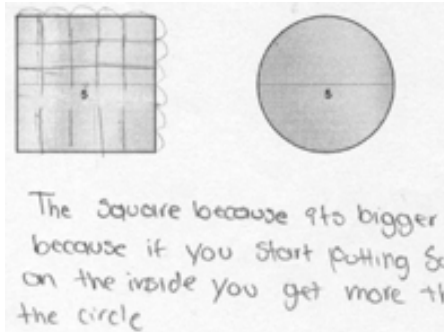 5 5
The square because its bigger
because if you start putting
on the inside you get more
the circle